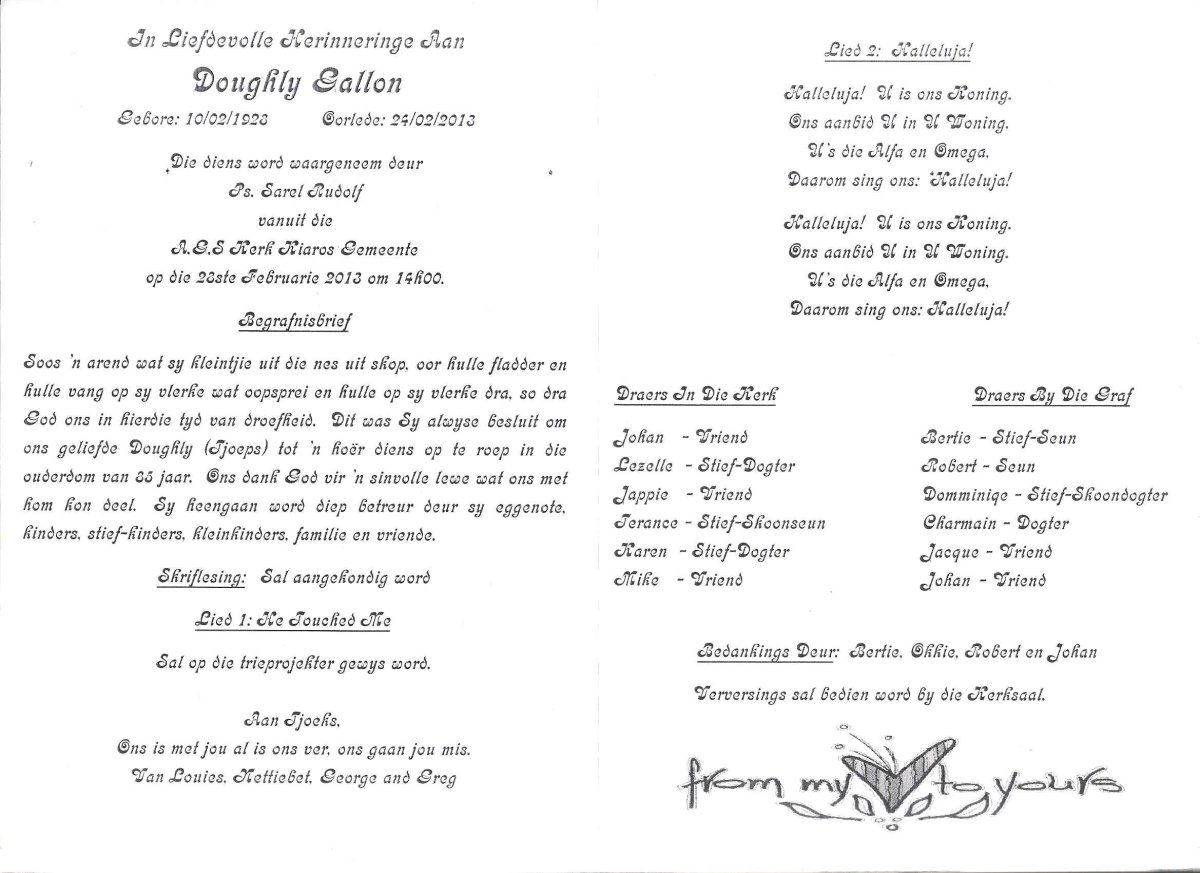 In Liefdevolle Herinneringe Aan
Doughly Gallon
Gebore: 10/02/1928 Oorlede: 24/02/2013
Die diens word waargeneem deur
Ps. Sarel Rudolf
vanuit die
A.G.S Kerk Kiaros Gemeente
op die 28ste Februarie 2013 om 14h00.
Begrafnisbrief
Soos 'n arend wat sy kleintjie uit die nes uit skop, oor hulle fladder en
hulle vang op sy vlerke wat oopsprei en hulle op sy vlerke dra, so dra
God ons in hierdie tyd van droefheid. Dit was Sy alwyse besluit om
ons geliefde Doughly (Tjoeps) tot 'n hoër diens op te roep in die
ouderdom van 85 jaar. Ons dank God vir 'n sinvolle lewe wat ons met
hom kon deel. Sy heengaan word diep betreur deur sy eggenote,
kinders, stief-kinders, kleinkinders, familie en vriende.
Skriflesing: Sal aangekondig word
Lied 1: He Touched Me
Sal op die trieprojekter gewys word.
Aan Tjoeks,
Ons is met jou al is ons ver, ons gaan jou mis.
Van Louies, Hettiebet, George and Greg
Lied 2: Halleluja!
Halleluja! U is ons Koning.
Ons aanbid U in U Woning.
U's die Alfa en Omega,
Daarom sing ons: 'Halleluja!
Halleluja! U is ons Koning.
Ons aanbid U in U Woning.
U's die Alfa en Omega,
Daarom sing ons: Halleluja!
Draers In Die Kerk
Johan - Vriend
Lezelle - Stief-Dogter
Jappie - Vriend
Terance - Stief-Skoonseun
Karen - Stief-Dogter
Mike - Vriend
Draers By Die Graf
Bertie - Stief-Seun
Robert - Seun
Domminiqe - Stief-Skoondogter
Charmain - Dogter
Jacque - Vriend
Johan - Vriend
Bedankings Deur: Bertie, Okkie, Robert en Johan
Verversings sal bedien word by die Kerksaal.
from my to yours